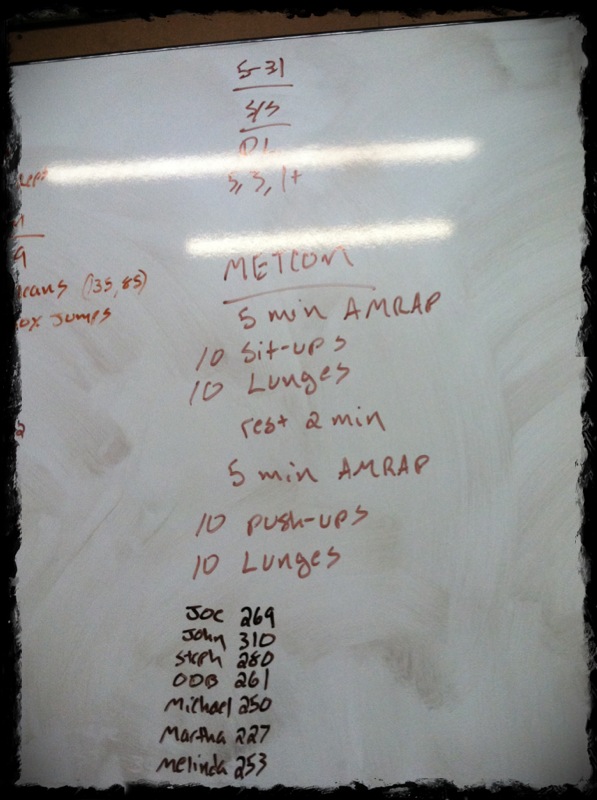 5-31
S/S
DL
5, 3, 1+
(135, 85)
Jumps
METCON
5 min AMRAP
10 Sit-ups
10 Lunges
rest 2 min
5 min AMRAP
10 push-ups
10 Lunges
Joe 269
John 310
Steph 280
ODB 261
Michael 250
Martha 227
Melinda 253